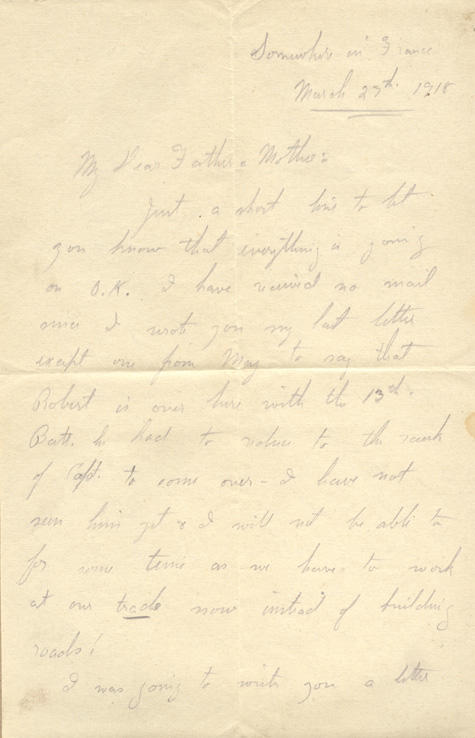 Somewhere in France
March 27th. 1918
My Dear Father & Mother:
Just a short line to let
you know that everything is going
on O.K. I have received no mail
since I wrote you my last letter
except one from May to say that
Robert is over here with the 13th.
Batt. he had to reduce to the rank
of Capt. to come over - I have not
seen him yet & I will not be able to
for some time as we have to work
at our trade now instead of building
roads!
I was going to write you a letter